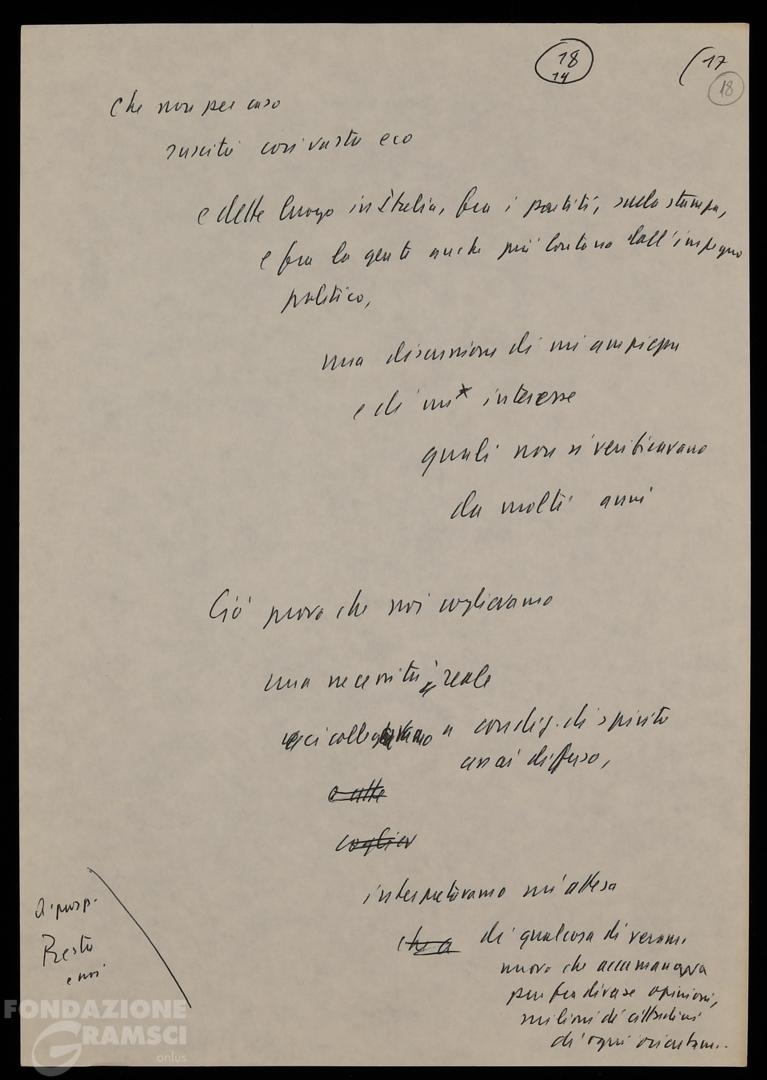 18
14
17
18
che non per caso
suscitò così vasta eco
e dette luogo in Italia, fra i partiti, sulla stampa,
e fra la gente anche più lontana dall'impegno
politico,
una discussione di un'ampiezza
e di un interesse
quali non si verificavano
da molti anni
Ciò prova che noi coglievamo
una necessità reale
e ci collegavamo a condiz. di spirito
assai diffuso,
o atte
coglier
interpretavamo un'attesa
che a di qualcosa di veram.
nuovo che accumunava
pur fra diverse opinioni,
milioni di cittadini
di ogni orientam..
Presto
e noi
FONDAZIONE
GRAMSCI
onlus